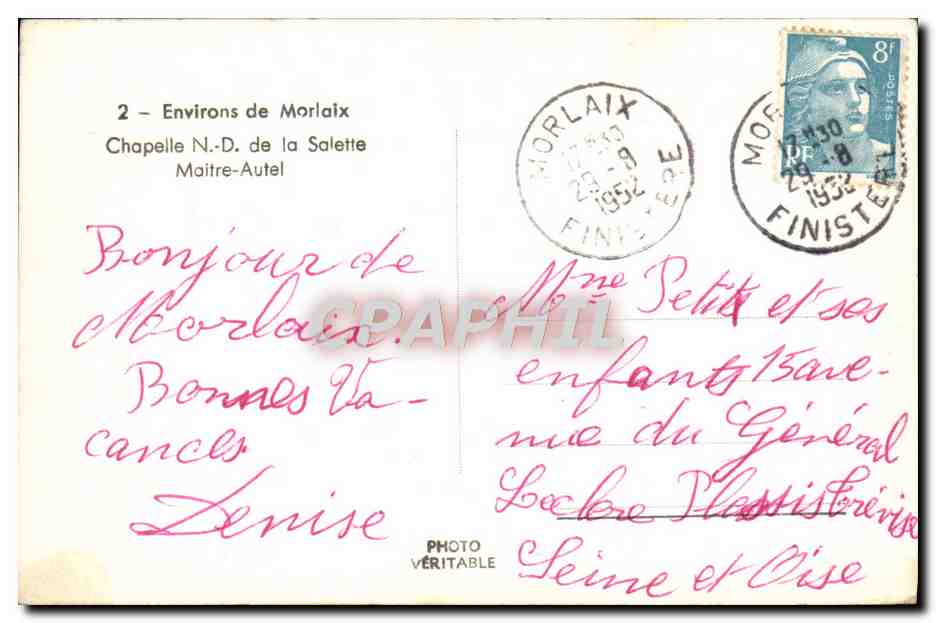 2 - Environs de Morlaix
Chapelle N.-D. de la Salette
Maitre-Autel
Bonjour de
Morlaix.
Bonnes Va-
cances
Denise
PHOTO
VÉRITABLE
MORLAIX
17H30
29-8
1952
FINISTERE
MOR
17H30
29-8
1952
FINISTERE
8f
POSTES
RF
Mme Petit et ses
enfants 15 ave-
nue du Général
Leclerc Plessis Trévise
Seine et Oise
CPAPHIL